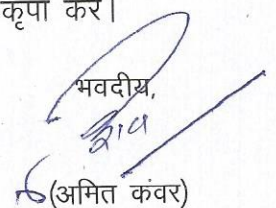 कृपा करें।
भवदीय,
(अमित कंवर)